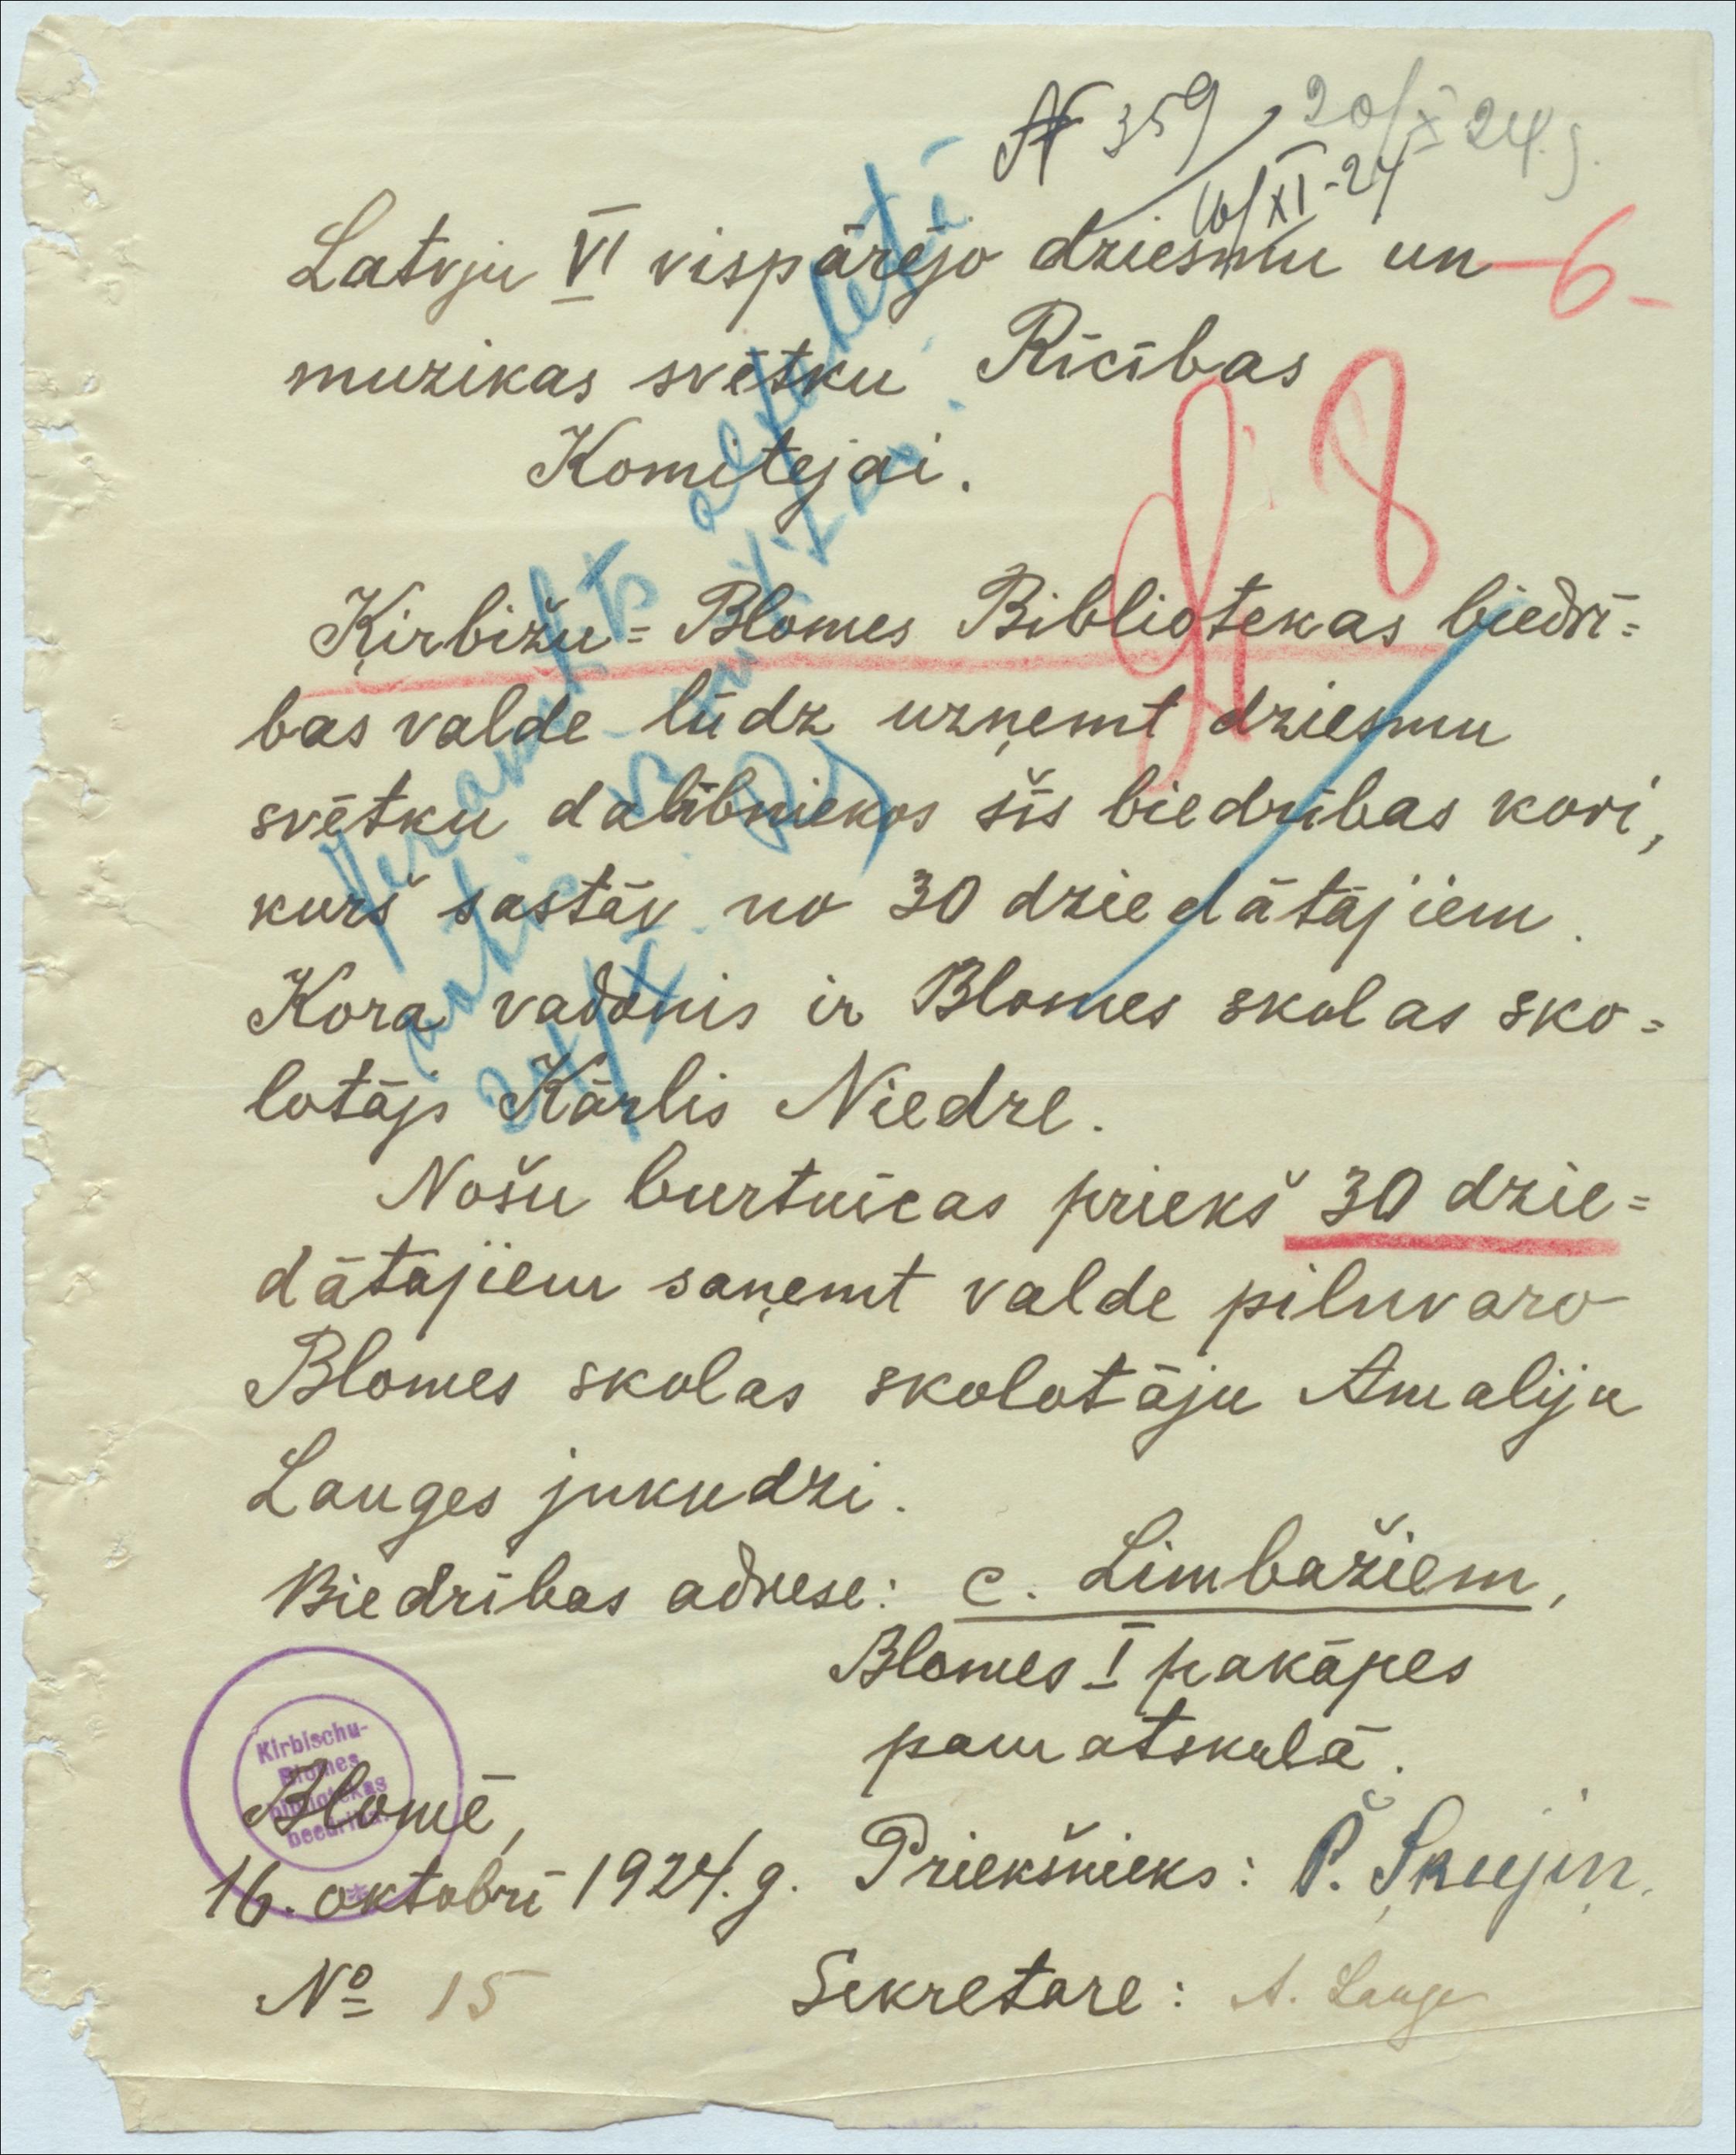 N 359, 20/X 24.g.
10/XI-24
Latvju VI vispārējo dziesmu un
6
muzikas svētku Rīcības
Komitejai.
8
Ķirbižu=Blomes Bibliotekas biedrī=
bas valde lūdz uzņemt dziesmu
svētku dalībniekos šīs biedrības kori,
kurš sastāv no 30 dziedātājiem.
Kora vadonis ir Blomes skolas sko=
lotājs Kārlis Niedre.
Nošu burtnīcas priekš 30 dzie=
dātājiem saņemt valde pilnvaro
Blomes skolas skolotāju Amaliju
Lauges jukudzi.
Biedrības adrese: c. Limbažiem,
Blomes I pakāpes
pamatskolā.
Kirbischu-
Blomes
bibliotekas
beedriba
Blomē,
16. oktobrī 1924. g. Priekšnieks: P. Skujiņ
№ 15 Sekretare: A. Lauge